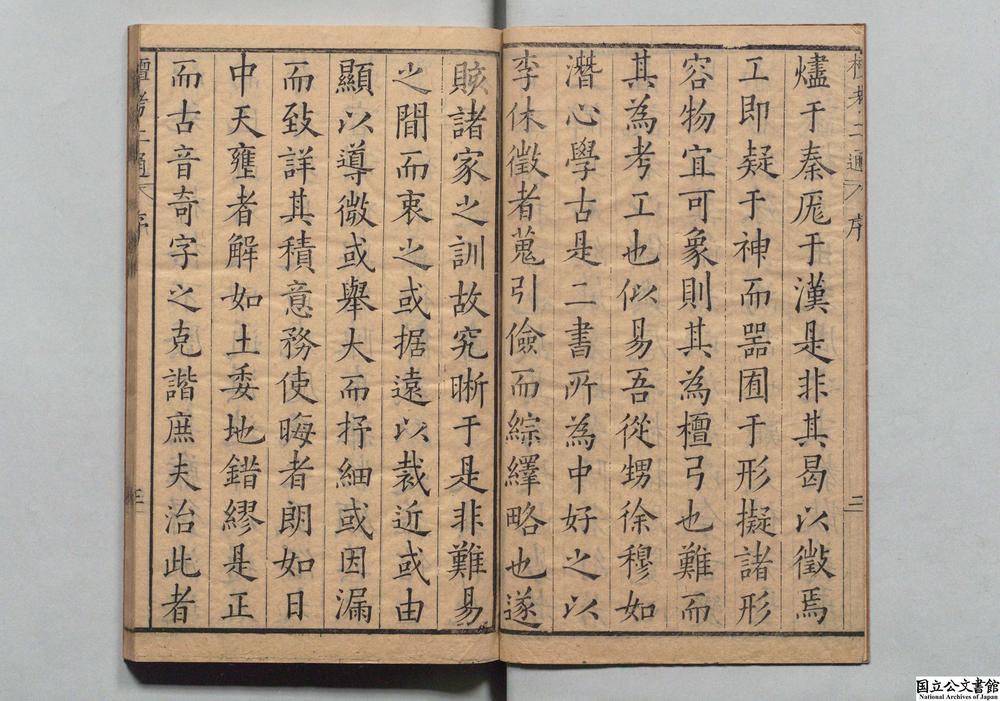 燼于秦厖于漢是非其曷以徵焉
工即疑于神而器囿于形擬諸形
容物宜可象則其為檀弓也難而
其為考工也似易吾從甥徐穆如
潛心學古是二書所為中好之以
李休徵者蒐引儉而綜繹略也遂
賅諸家之訓故究晰于是非難易
之間而衷之或据遠以裁近或由
顯以導微或舉大而抒細或因漏
而致詳其積意務使晦者朗如日
中天壅者解如土委地錯繆是正
而古音奇字之克諧庶夫治此者
檀考二通
序
三
国立公文書館
National Archives of Japan